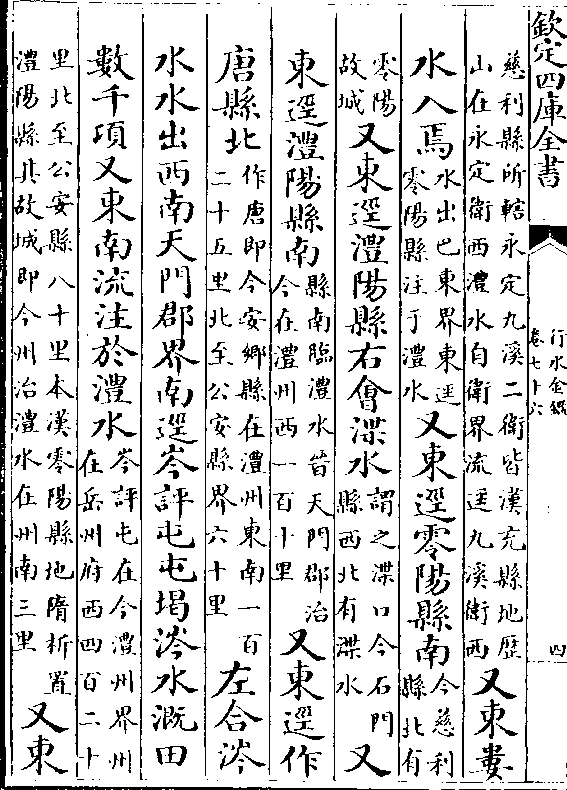 欽定四庫全書
行水金鑑
卷七十六
四
慈利縣所轄永定九溪二衛皆漢充縣地歷
山在永定衛西澧水自衛界流逕九溪衛西
又東婁
水入焉
水出巴東界東逕
零陽縣注于澧水
又東逕零陽縣南
今慈利
縣北有
零陽
故城
又東逕澧陽縣右會渫水
謂之渫口今石門
縣西北有渫水
又
東逕澧陽縣南
縣南臨澧水晉天門郡治
今在澧州西一百十里
又東逕作
唐縣北
作唐即今安鄉縣在澧州東南一百
二十五里北至公安縣界六十里
左合涔
水水出西南天門郡界南逕岑評屯屯堨涔水溉田
數千項又東南流注於澧水
岑評屯在今澧州界州
在岳州府西四百二十
里北至公安縣八十里本漢零陽縣地隋析置
澧陽縣其故城即今州治澧水在州南三里
又東